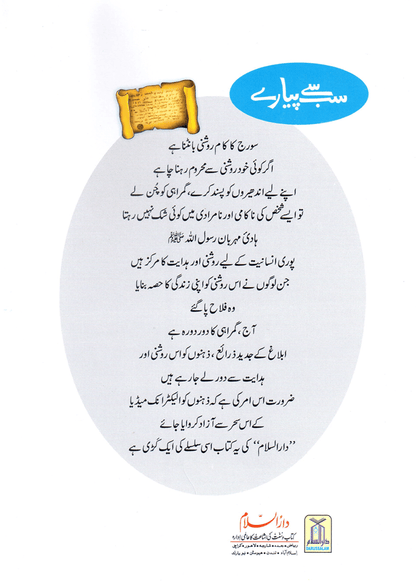 سب سے پیارے
سورج کا کام روشنی بانٹنا ہے
اگر کوئی خود روشنی سے محروم رہنا چاہے
اپنے لیے اندھیروں کو پسند کرے، گمراہی کو چُن لے
تو ایسے شخص کی ناکامی اور نامرادی میں کوئی شک نہیں رہتا
ہادیٔ مہربان رسول اللہ ﷺ
پوری انسانیت کے لیے روشنی اور ہدایت کا مرکز ہیں
جن لوگوں نے اس روشنی کو اپنی زندگی کا حصہ بنایا
وہ فلاح پا گئے
آج، گمراہی کا دور دورہ ہے
ابلاغ کے جدید ذرائع، ذہنوں کو اس روشنی اور
ہدایت سے دور لے جا رہے ہیں
ضرورت اس امر کی ہے کہ ذہنوں کو الیکٹرانک میڈیا
کے اس سحر سے آزاد کروایا جائے
”دارالسلام“ کی یہ کتاب اسی سلسلے کی ایک کڑی ہے
دارالسلام
کتاب و سنت کی اشاعت کا عالمی ادارہ
ریاض • جدہ • شارجہ • لاہور • کراچی
اسلام آباد • لندن • ہیوسٹن • نیو یارک
دارالسلام
DARUSSALAM